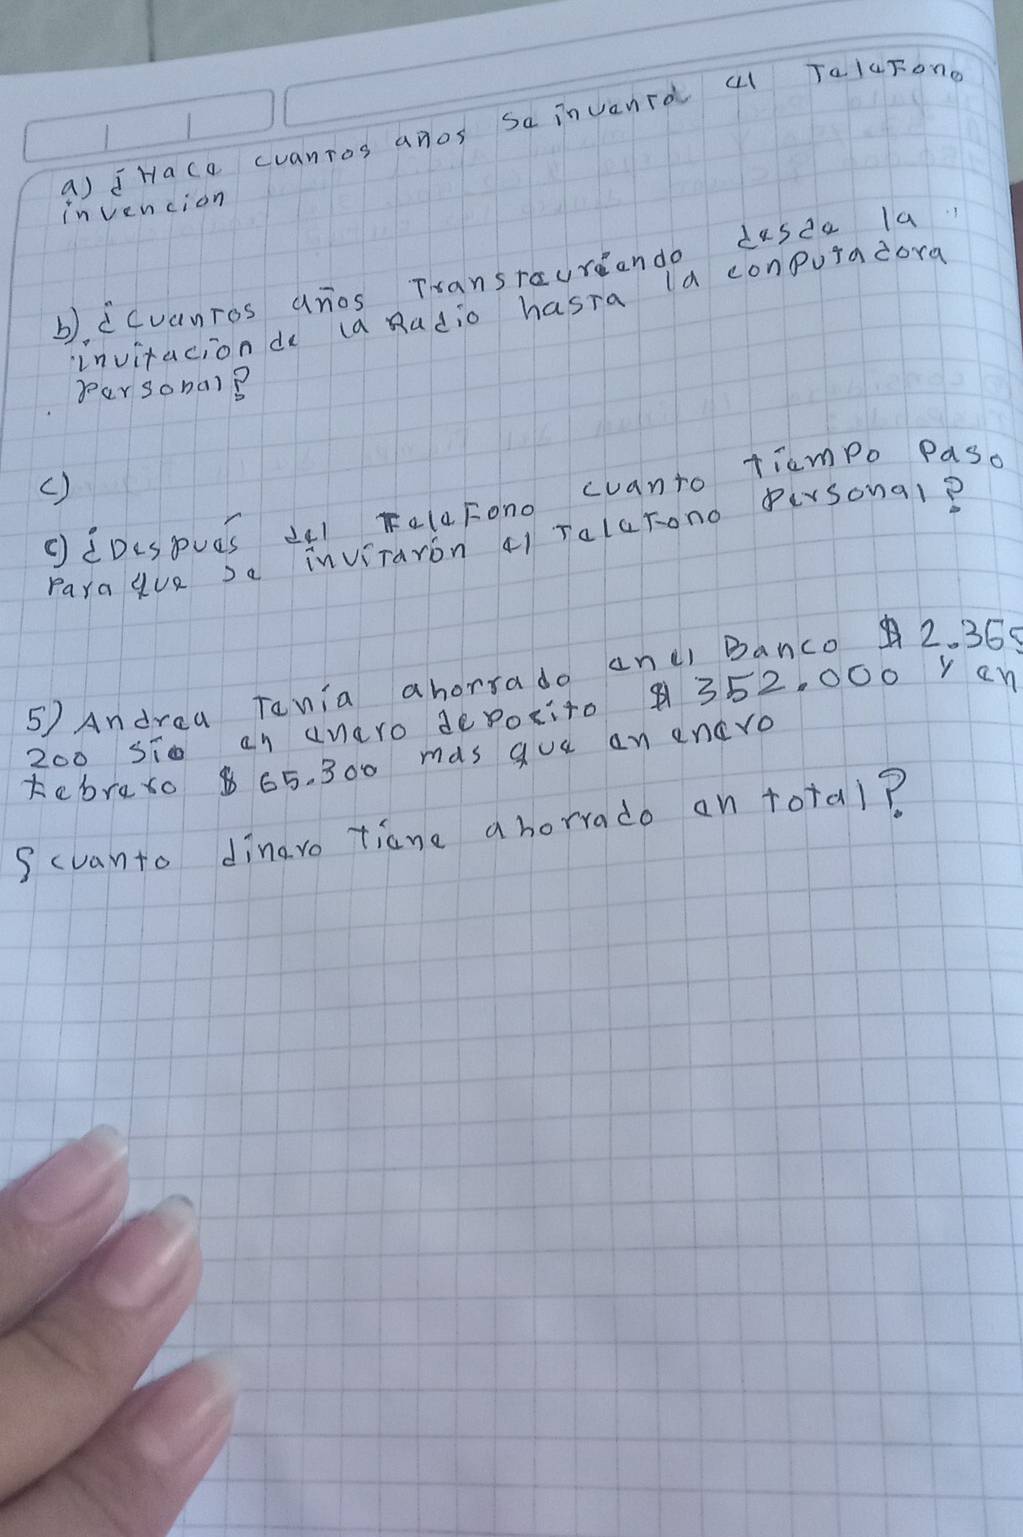 a) ¿Hace cuantos años se invento el Telefono
invencion
b) ¿cuantos años Transrcurriendo desde la
invitacion de la Radio hasta la conputadora
personal?
c)
c) ¿Después del Telefono cuanto tiempo paso
para que se invitarón el Telefono personal?
5) Andrea Tenía ahorrado en el Banco $ 2.365
200 sie en enero deposito $ 352.000 y en
febrero $ 65.300 mas que en enero
¿cuanto dinero tiene ahorrado en total?